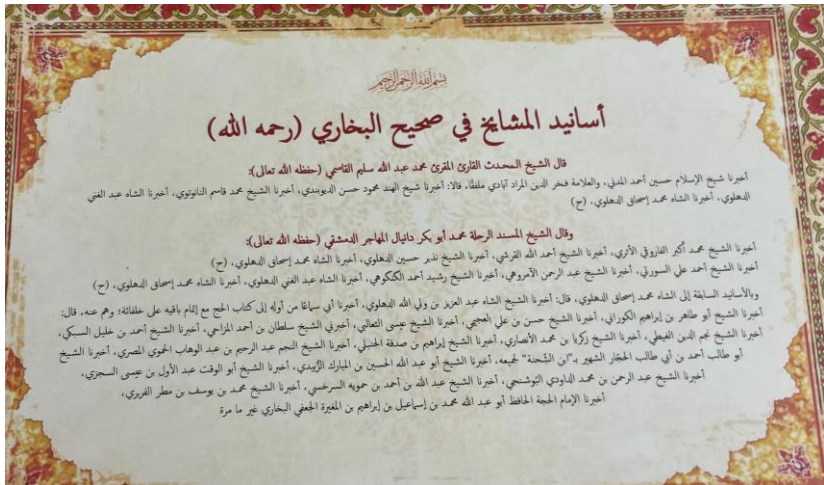 بسم الله الرحمن الرحيم
أسانيد المشايخ في صحيح البخاري (رحمه الله)
قال الشيخ المحدث القارئ المقرئ محمد عبد الله سليم القاسمي (حفظه الله تعالى):
أخبرنا شيخ الإسلام حسين أحمد المدني، والعلامة فخر الدين المراد آبادي ملفقًا، قالا: أخبرنا شيخ الهند محمود حسن الديوبندي، أخبرنا الشيخ محمد قاسم النانوتوي، أخبرنا الشاه عبد الغني
الدهلوي، أخبرنا الشاه محمد إسحاق الدهلوي، (ح)
وقال الشيخ المسند الرحلة محمد أبو بكر دانيال المهاجر الدمشقي (حفظه الله تعالى):
أخبرنا الشيخ محمد أكبر الفاروقي الأثري، أخبرنا الشيخ أحمد الله القرشي، أخبرنا الشيخ نذير حسين الدهلوي، أخبرنا الشاه محمد إسحاق الدهلوي، (ح)
أخبرنا الشيخ أحمد علي السورتي، أخبرنا الشيخ عبد الرحمن الأمروهي، أخبرنا الشيخ رشيد أحمد الكنكوهي، أخبرنا الشاه عبد الغني الدهلوي، أخبرنا الشاه محمد إسحاق الدهلوي، (ح)
وبالأسانيد السابقة إلى الشاه محمد إسحاق الدهلوي، قال: أخبرنا الشيخ الشاه عبد العزيز بن ولي الله الدهلوي، أخبرنا أبي سماعًا من أوله إلى كتاب الحج مع إتمام باقيه على خلفائه؛ وهم عنه، قال:
أخبرنا الشيخ أبو طاهر بن إبراهيم الكوراني، أخبرنا الشيخ حسن بن علي العجيمي، أخبرنا الشيخ عيسى الثعالبي، أخبرني الشيخ سلطان بن أحمد المزاحي، أخبرنا الشيخ أحمد بن خليل السبكي،
أخبرنا الشيخ نجم الدين الغيطي، أخبرنا الشيخ زكريا بن محمد الأنصاري، أخبرنا الشيخ إبراهيم بن صدقة الحنبلي، أخبرنا الشيخ النجم عبد الرحيم بن عبد الوهاب الحموي المصري، أخبرنا الشيخ
أبو طالب أحمد بن أبي طالب الحجار الشهير بـ"ابن الشحنة" لجميعه، أخبرنا الشيخ أبو عبد الله الحسين بن المبارك الزبيدي، أخبرنا الشيخ أبو الوقت عبد الأول بن عيسى السجزي،
أخبرنا الشيخ عبد الرحمن بن محمد الداودي البوشنجي، أخبرنا الشيخ عبد الله بن أحمد بن حمويه السرخسي، أخبرنا الشيخ محمد بن يوسف بن مطر الفربري،
أخبرنا الإمام الحجة الحافظ أبو عبد الله محمد بن إسماعيل بن إبراهيم بن المغيرة الجعفي البخاري غير ما مرة